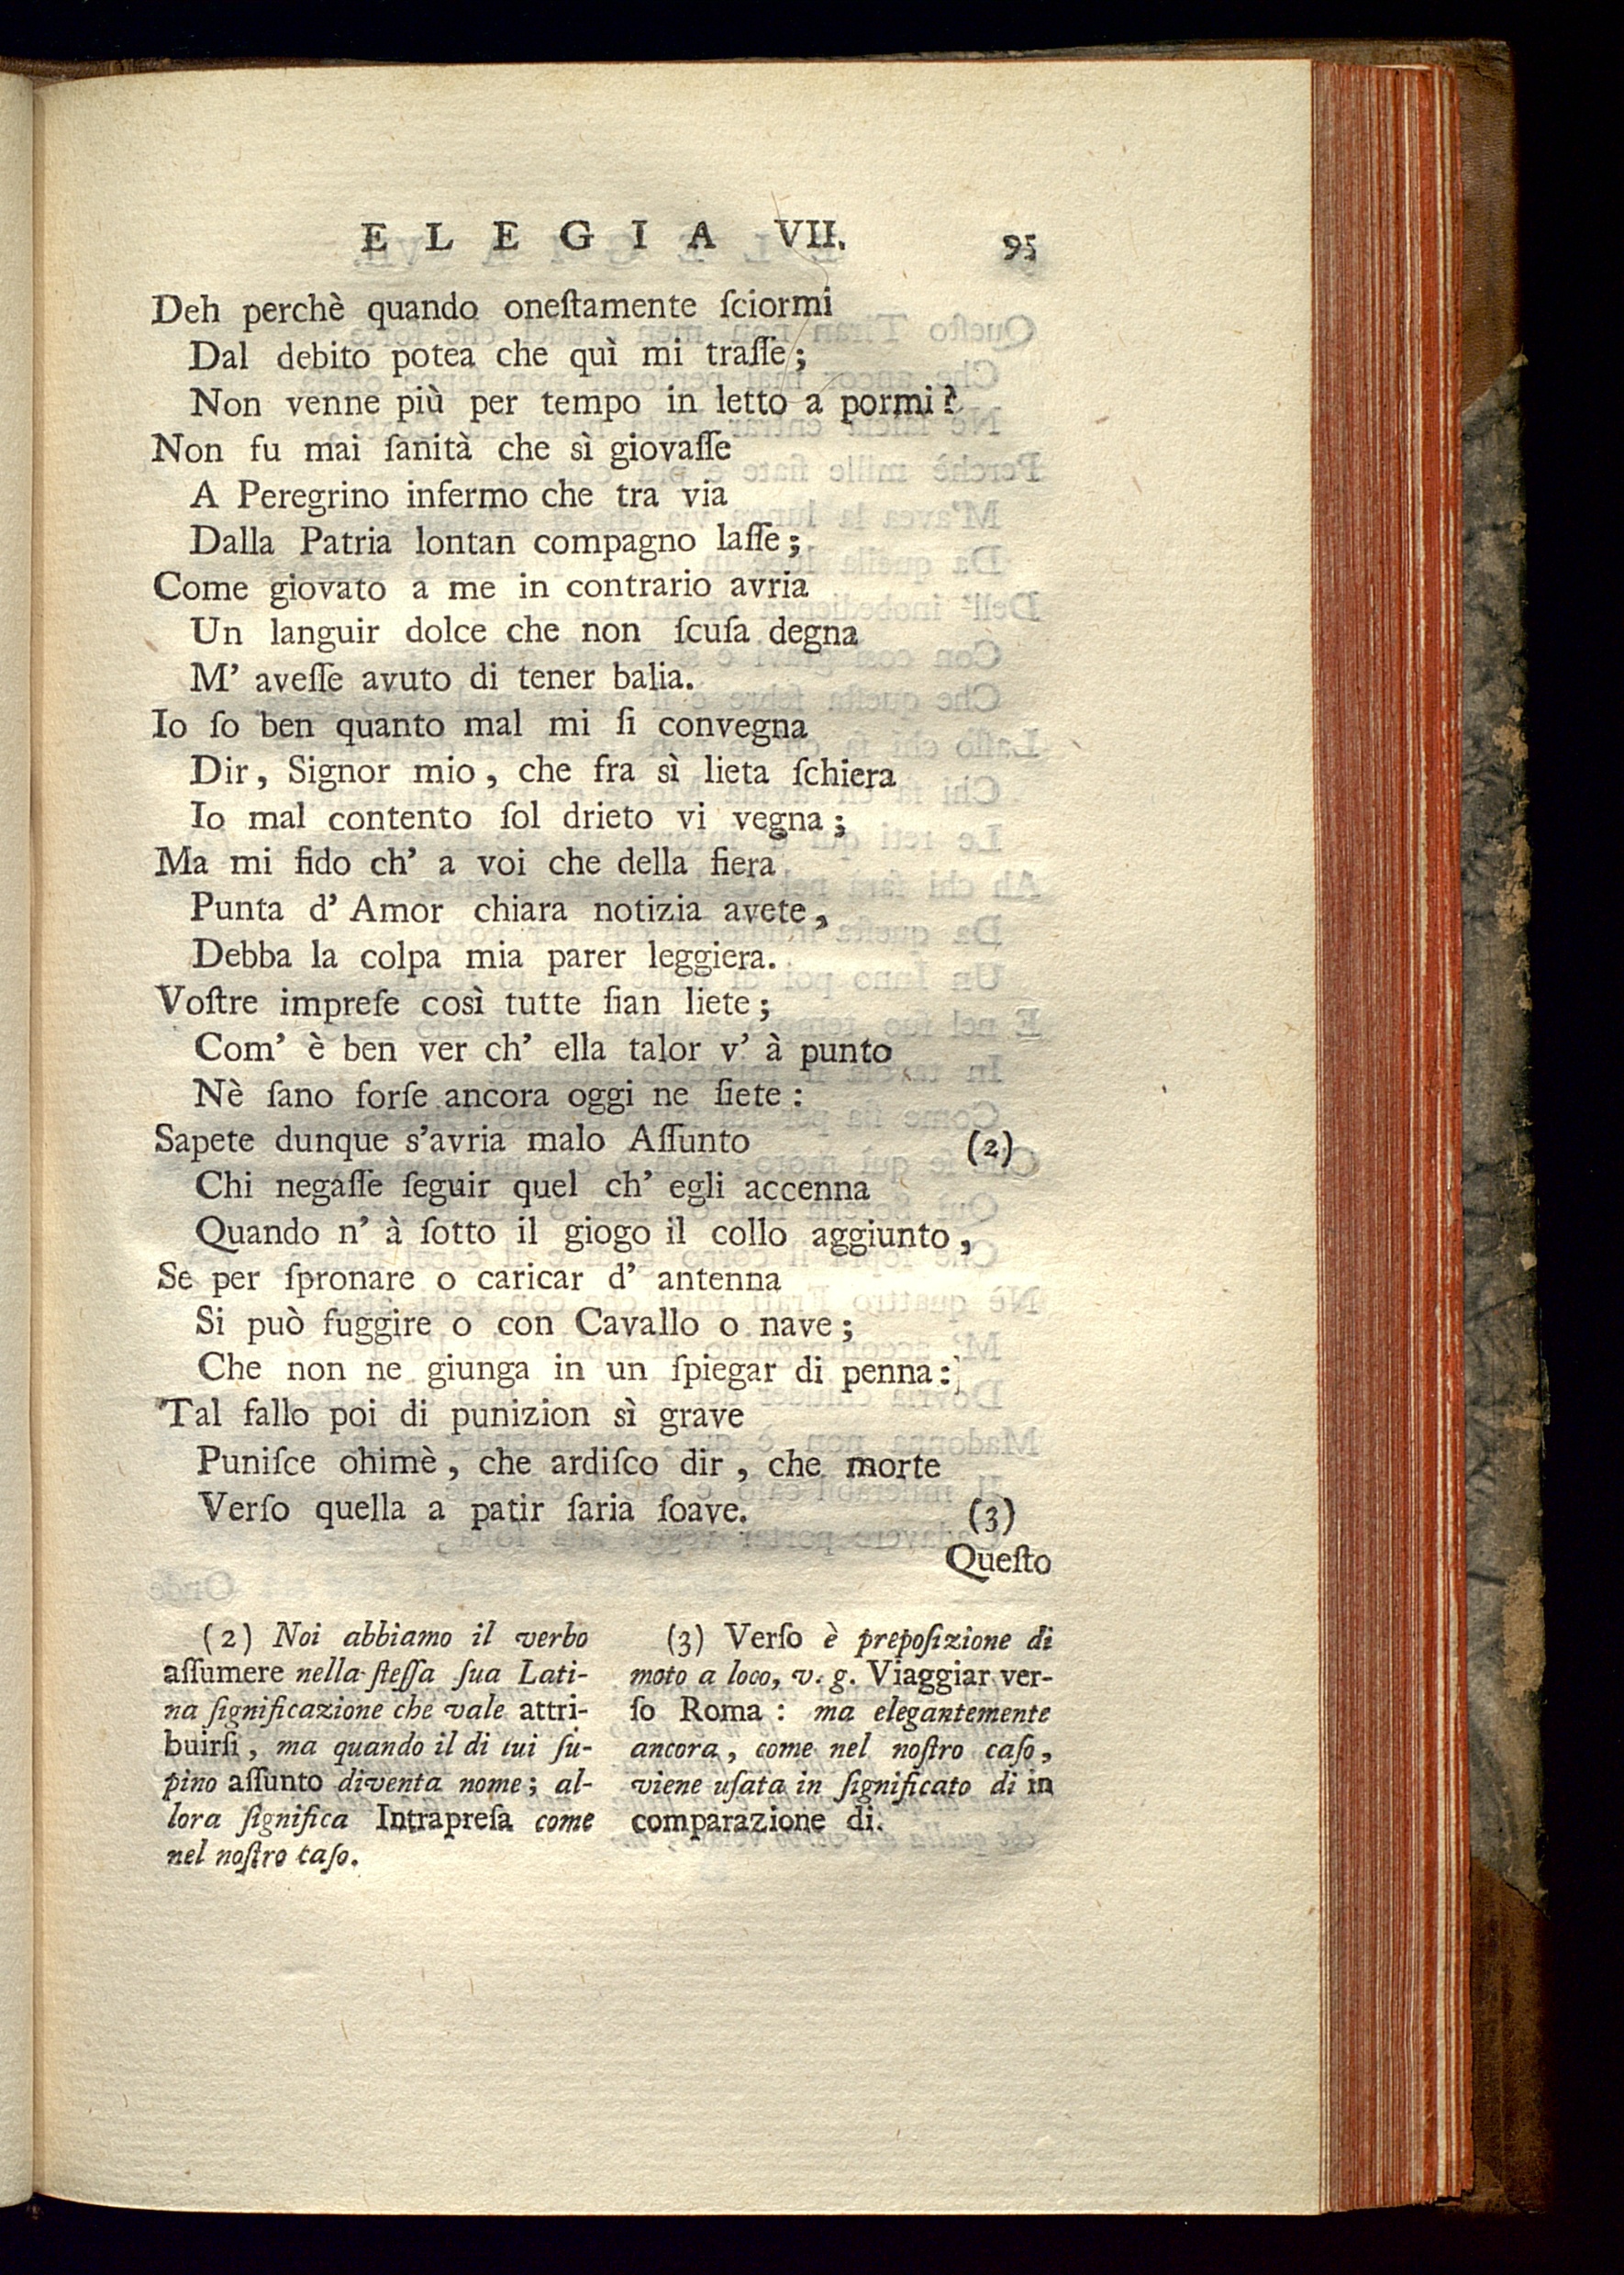 ELEGIA VII. 95
Deh perchè quando oneſtamente ſciormi
Dal debito potea che quì mi traſſe;
Non venne più per tempo in letto a pormi?
Non fu mai ſanità che sì giovaſſe
A Peregrino infermo che tra via
Dalla Patria lontan compagno laſſe;
Come giovato a me in contrario avria
Un languir dolce che non ſcuſa degna
M' aveſſe avuto di tener balia.
Io ſo ben quanto mal mi ſi convegna
Dir, Signor mio, che fra sì lieta ſchiera
Io mal contento ſol drieto vi vegna;
Ma mi fido ch' a voi che della fiera
Punta d' Amor chiara notizia avete,
Debba la colpa mia parer leggiera.
Voſtre impreſe così tutte ſian liete;
Com' è ben ver ch' ella talor v' à punto
Nè ſano forſe ancora oggi ne ſiete:
Sapete dunque s'avria malo Aſſunto (2)
Chi negaſſe ſeguir quel ch' egli accenna
Quando n' à ſotto il giogo il collo aggiunto,
Se per ſpronare o caricar d' antenna
Si può fuggire o con Cavallo o nave;
Che non ne giunga in un ſpiegar di penna:
Tal fallo poi di punizion sì grave
Puniſce ohimè, che ardiſco dir, che morte
Verſo quella a patir ſaria ſoave. (3)
Queſto
(2) Noi abbiamo il verbo
aſſumere nella ſteſſa ſua Lati-
na ſignificazione che vale attri-
buirſi, ma quando il di lui ſu-
pino aſſunto diventa nome; al-
lora ſignifica Intrapreſa come
nel noſtro caſo.
(3) Verſo è prepoſizione di
moto a loco, v. g. Viaggiar ver-
ſo Roma: ma elegantemente
ancora, come nel noſtro caſo,
viene uſata in ſignificato di in
comparazione di.